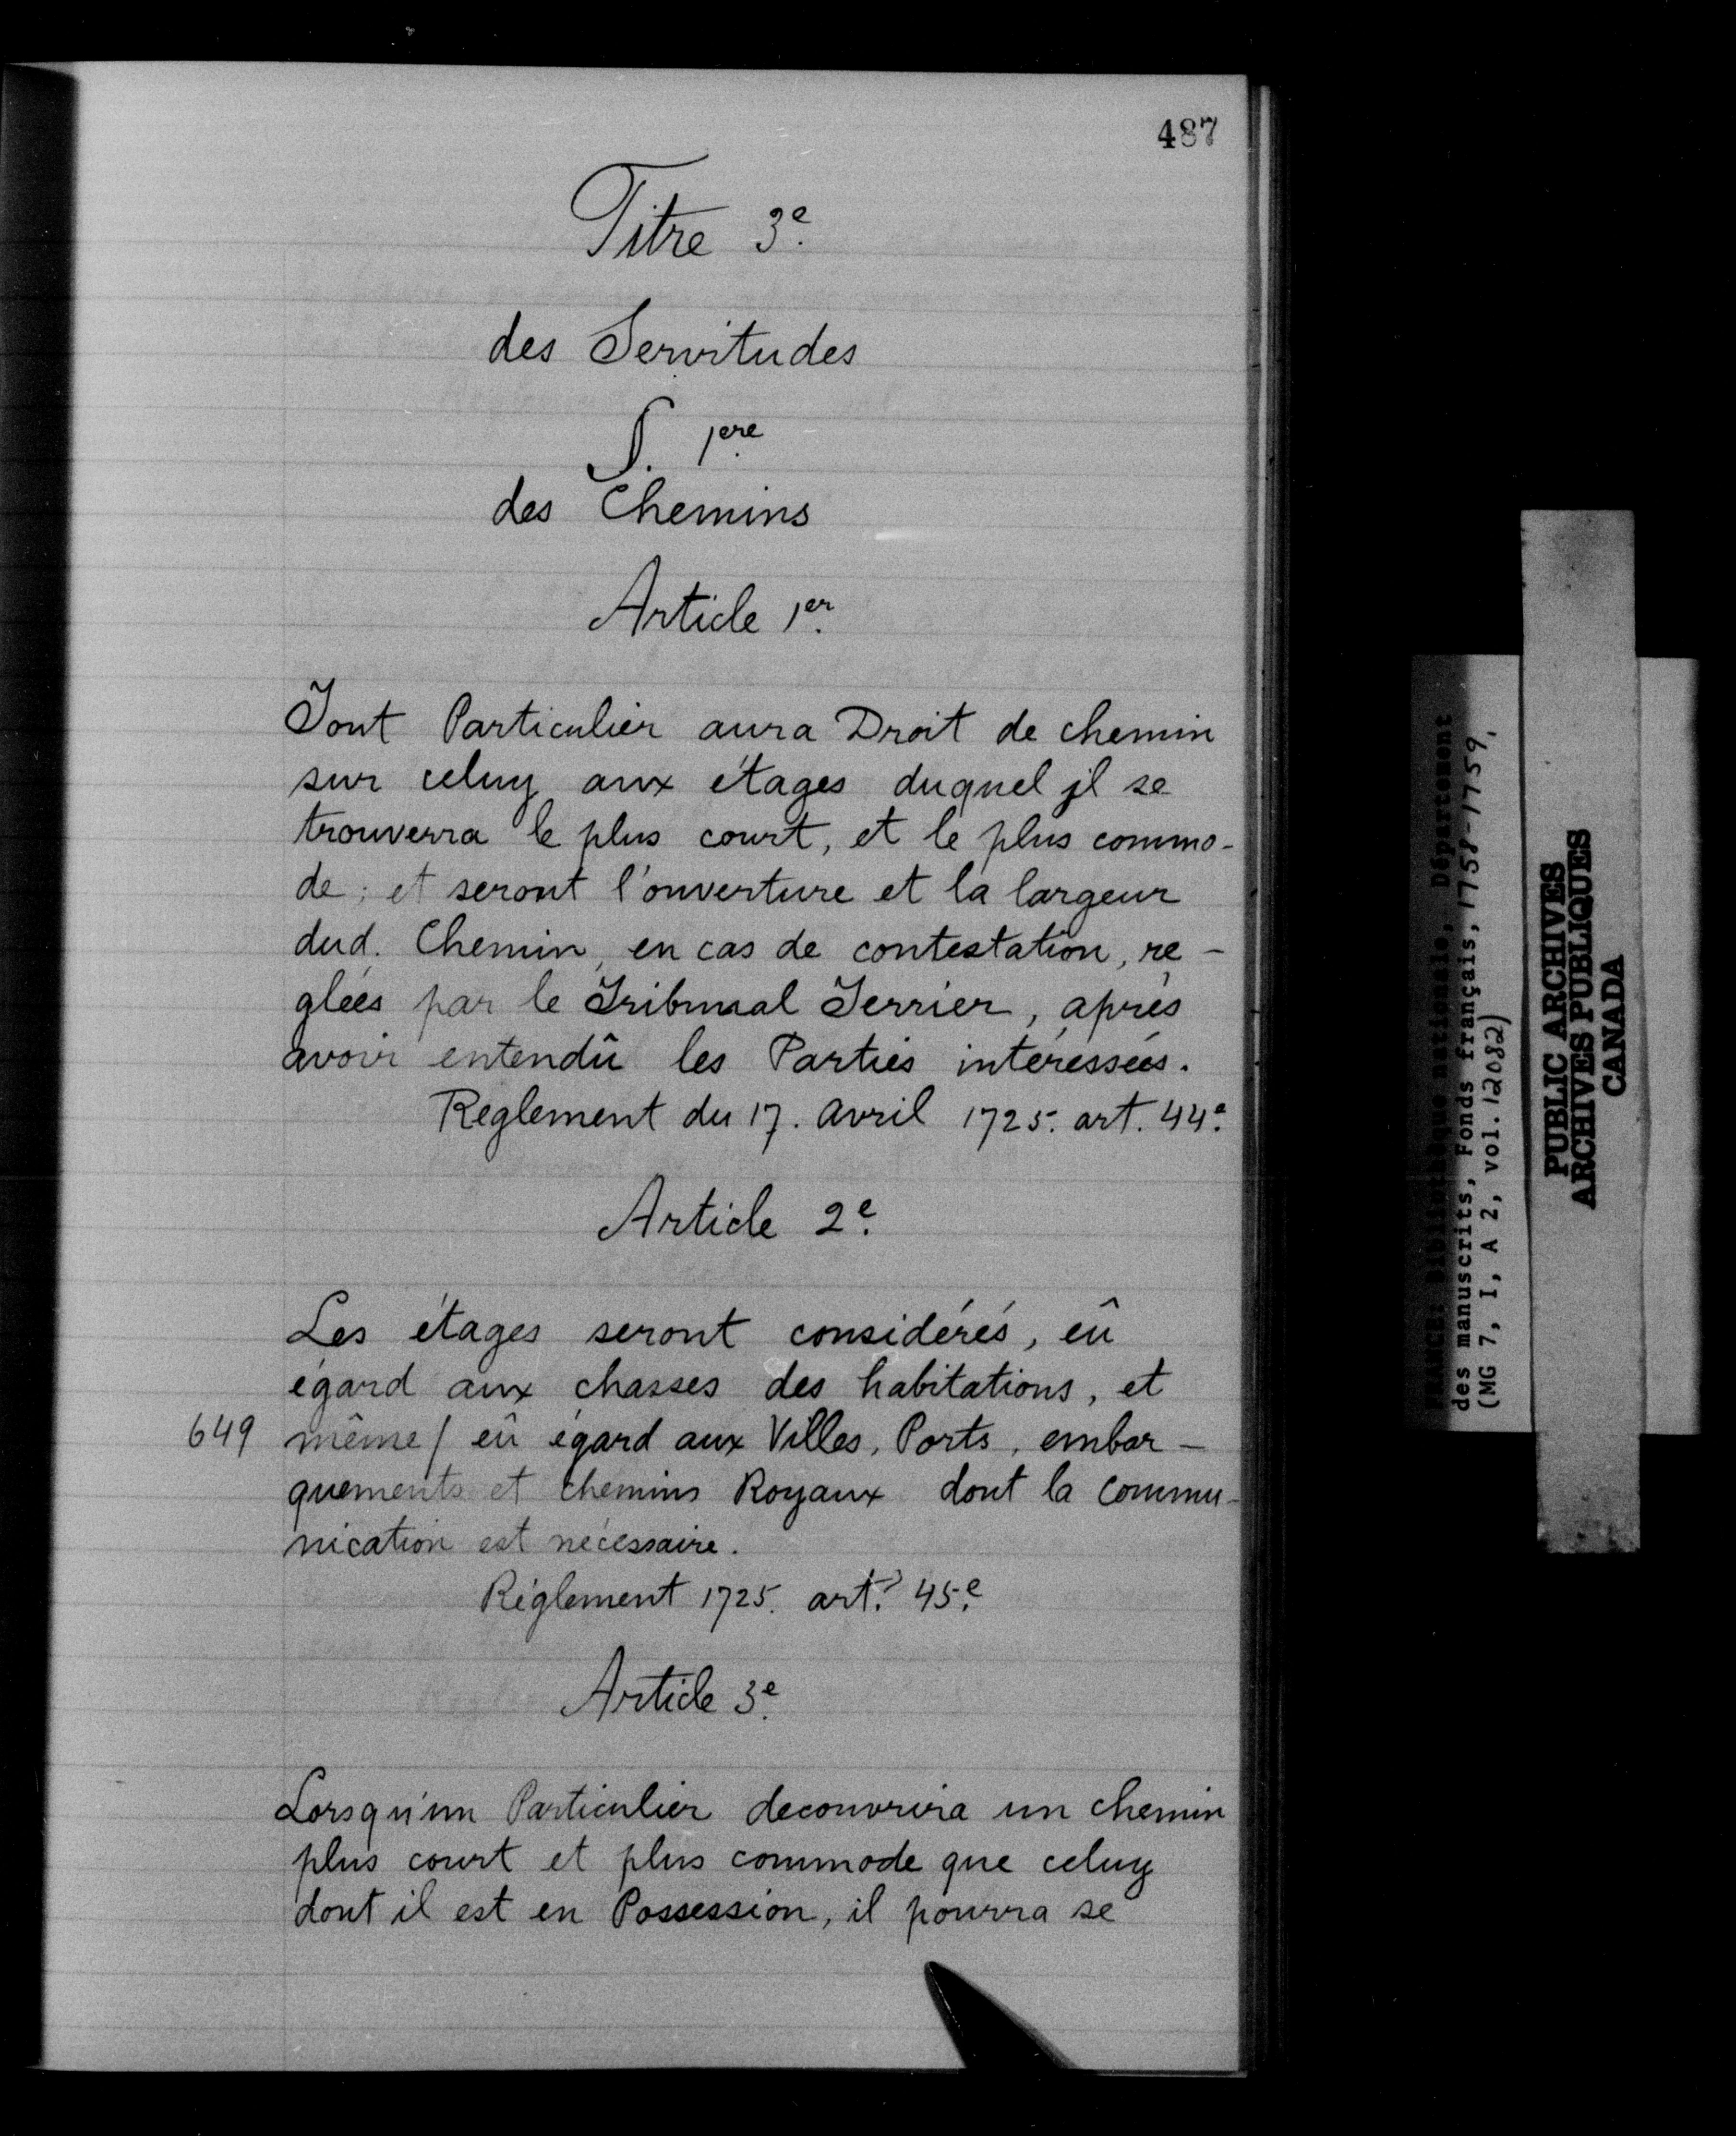 487
Titre 3e.
des Servitudes
§. 1ere.
des Chemins
Article 1er.
Tout Particulier aura Droit de chemin
sur celuy aux étages duquel jl se
trouverra le plus court, et le plus commo-
de; et seront l'ouverture et la largeur
dud. Chemin, en cas de contestation, re-
glées par le Tribunal Terrier, aprés
avoir entendû les Parties intéressées.
Reglement du 17. avril 1725. art. 44e.
Article 2e.
Les étages seront considérés, eû
égard aux chasses des habitations, et
649 même / eû égard aux Villes, Ports, embar-
quements et chemins Royaux dont la Commu-
nication est nécessaire.
Réglement 1725. art. 45e.
Article 3e.
Lorsqu'un Particulier decouvrira un chemin
plus court et plus commode que celuy
dont il est en Possession, il pourra se
FRANCE: Bibliothèque nationale, Département
des manuscrits, Fonds français, 1758-1759,
(MG 7, I, A 2, vol. 12082)
PUBLIC ARCHIVES
ARCHIVES PUBLIQUES
CANADA